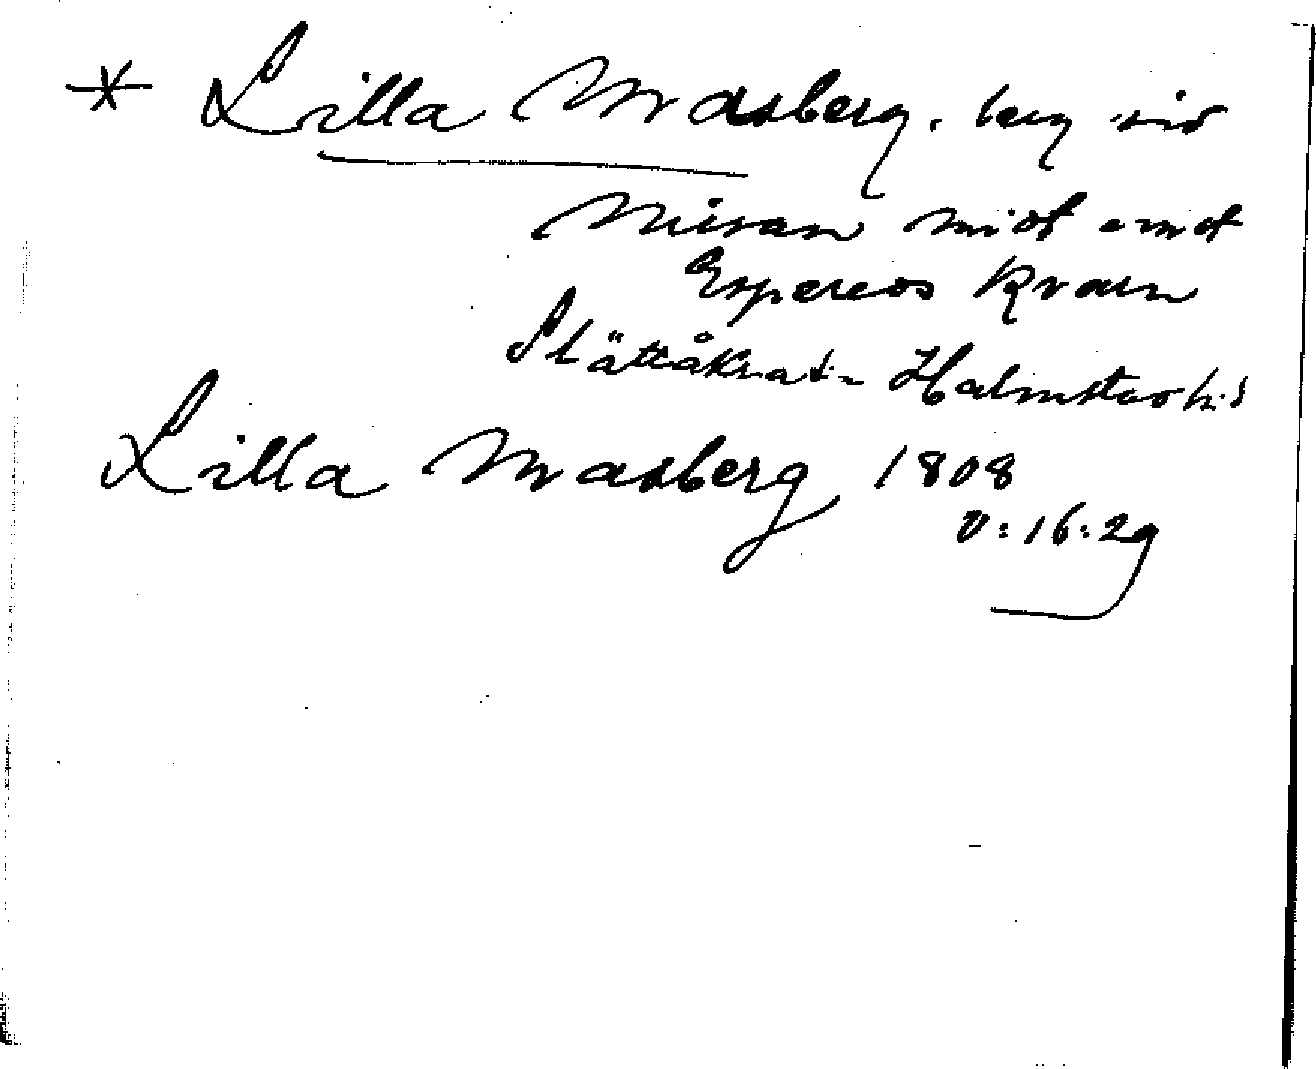 * Lilla Masberg. berg vid
Nissan midt emot
Espereds kvarn
Slättåkra s:n Halmstads h:d
Lilla Masberg 1808
V:16:29